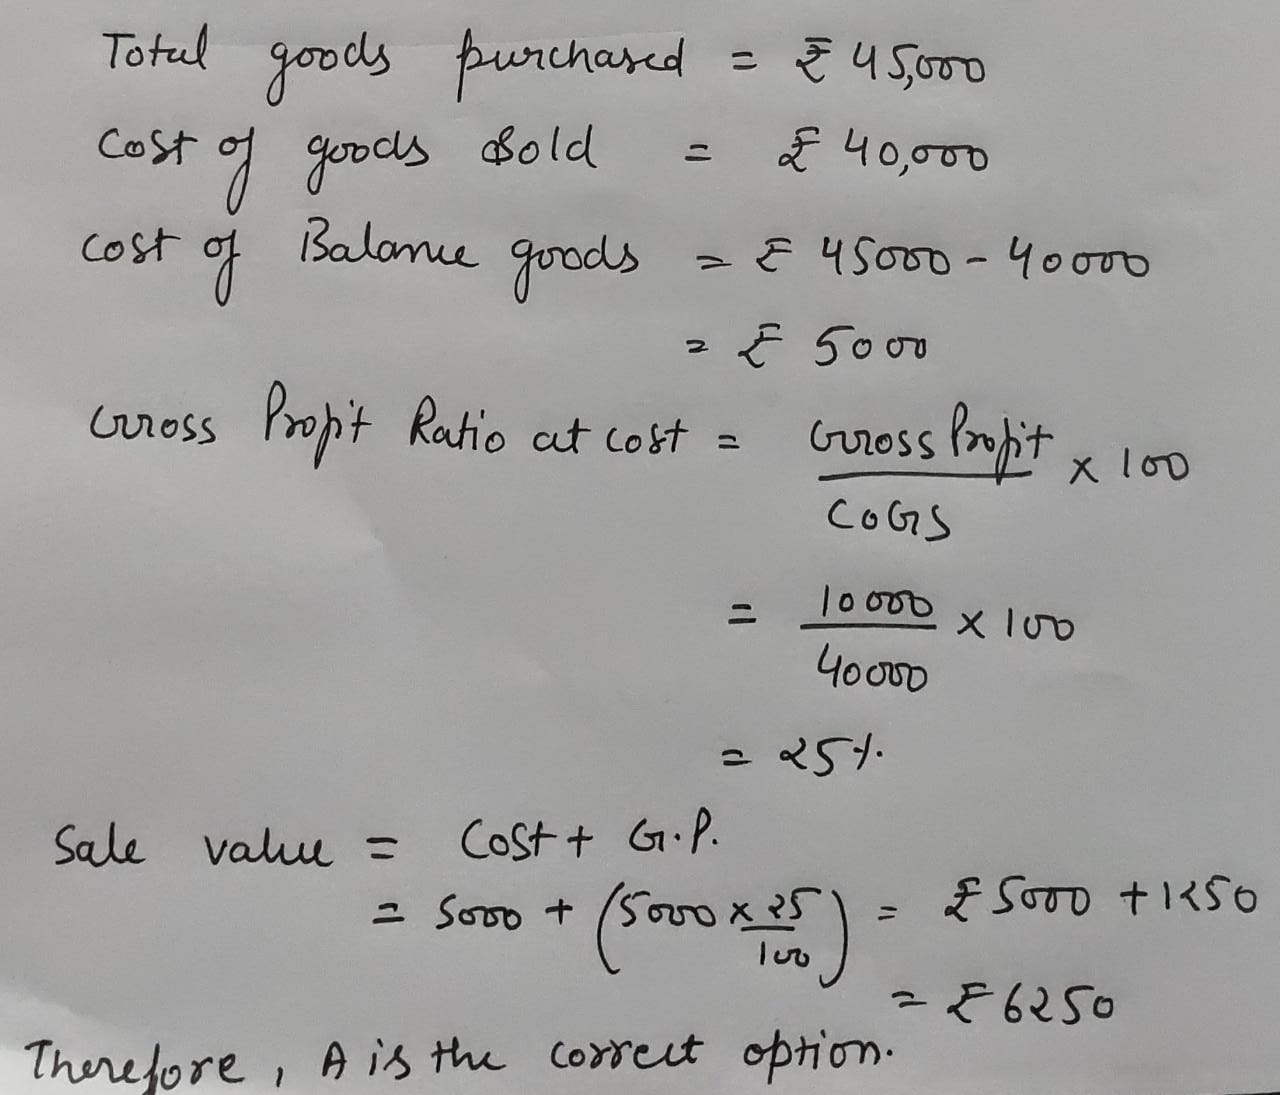 Total goods purchased = ₹ 45,000
Cost of goods sold = ₹ 40,000
Cost of Balance goods = ₹ 45000 - 40000
= ₹ 5000
Gross Profit Ratio at cost = Gross Profit / COGS x 100
= 10000 / 40000 x 100
= 25%
Sale value = Cost + G.P.
= 5000 + (5000 x 25/100) = ₹ 5000 + 1250
= ₹ 6250
Therefore, A is the correct option.